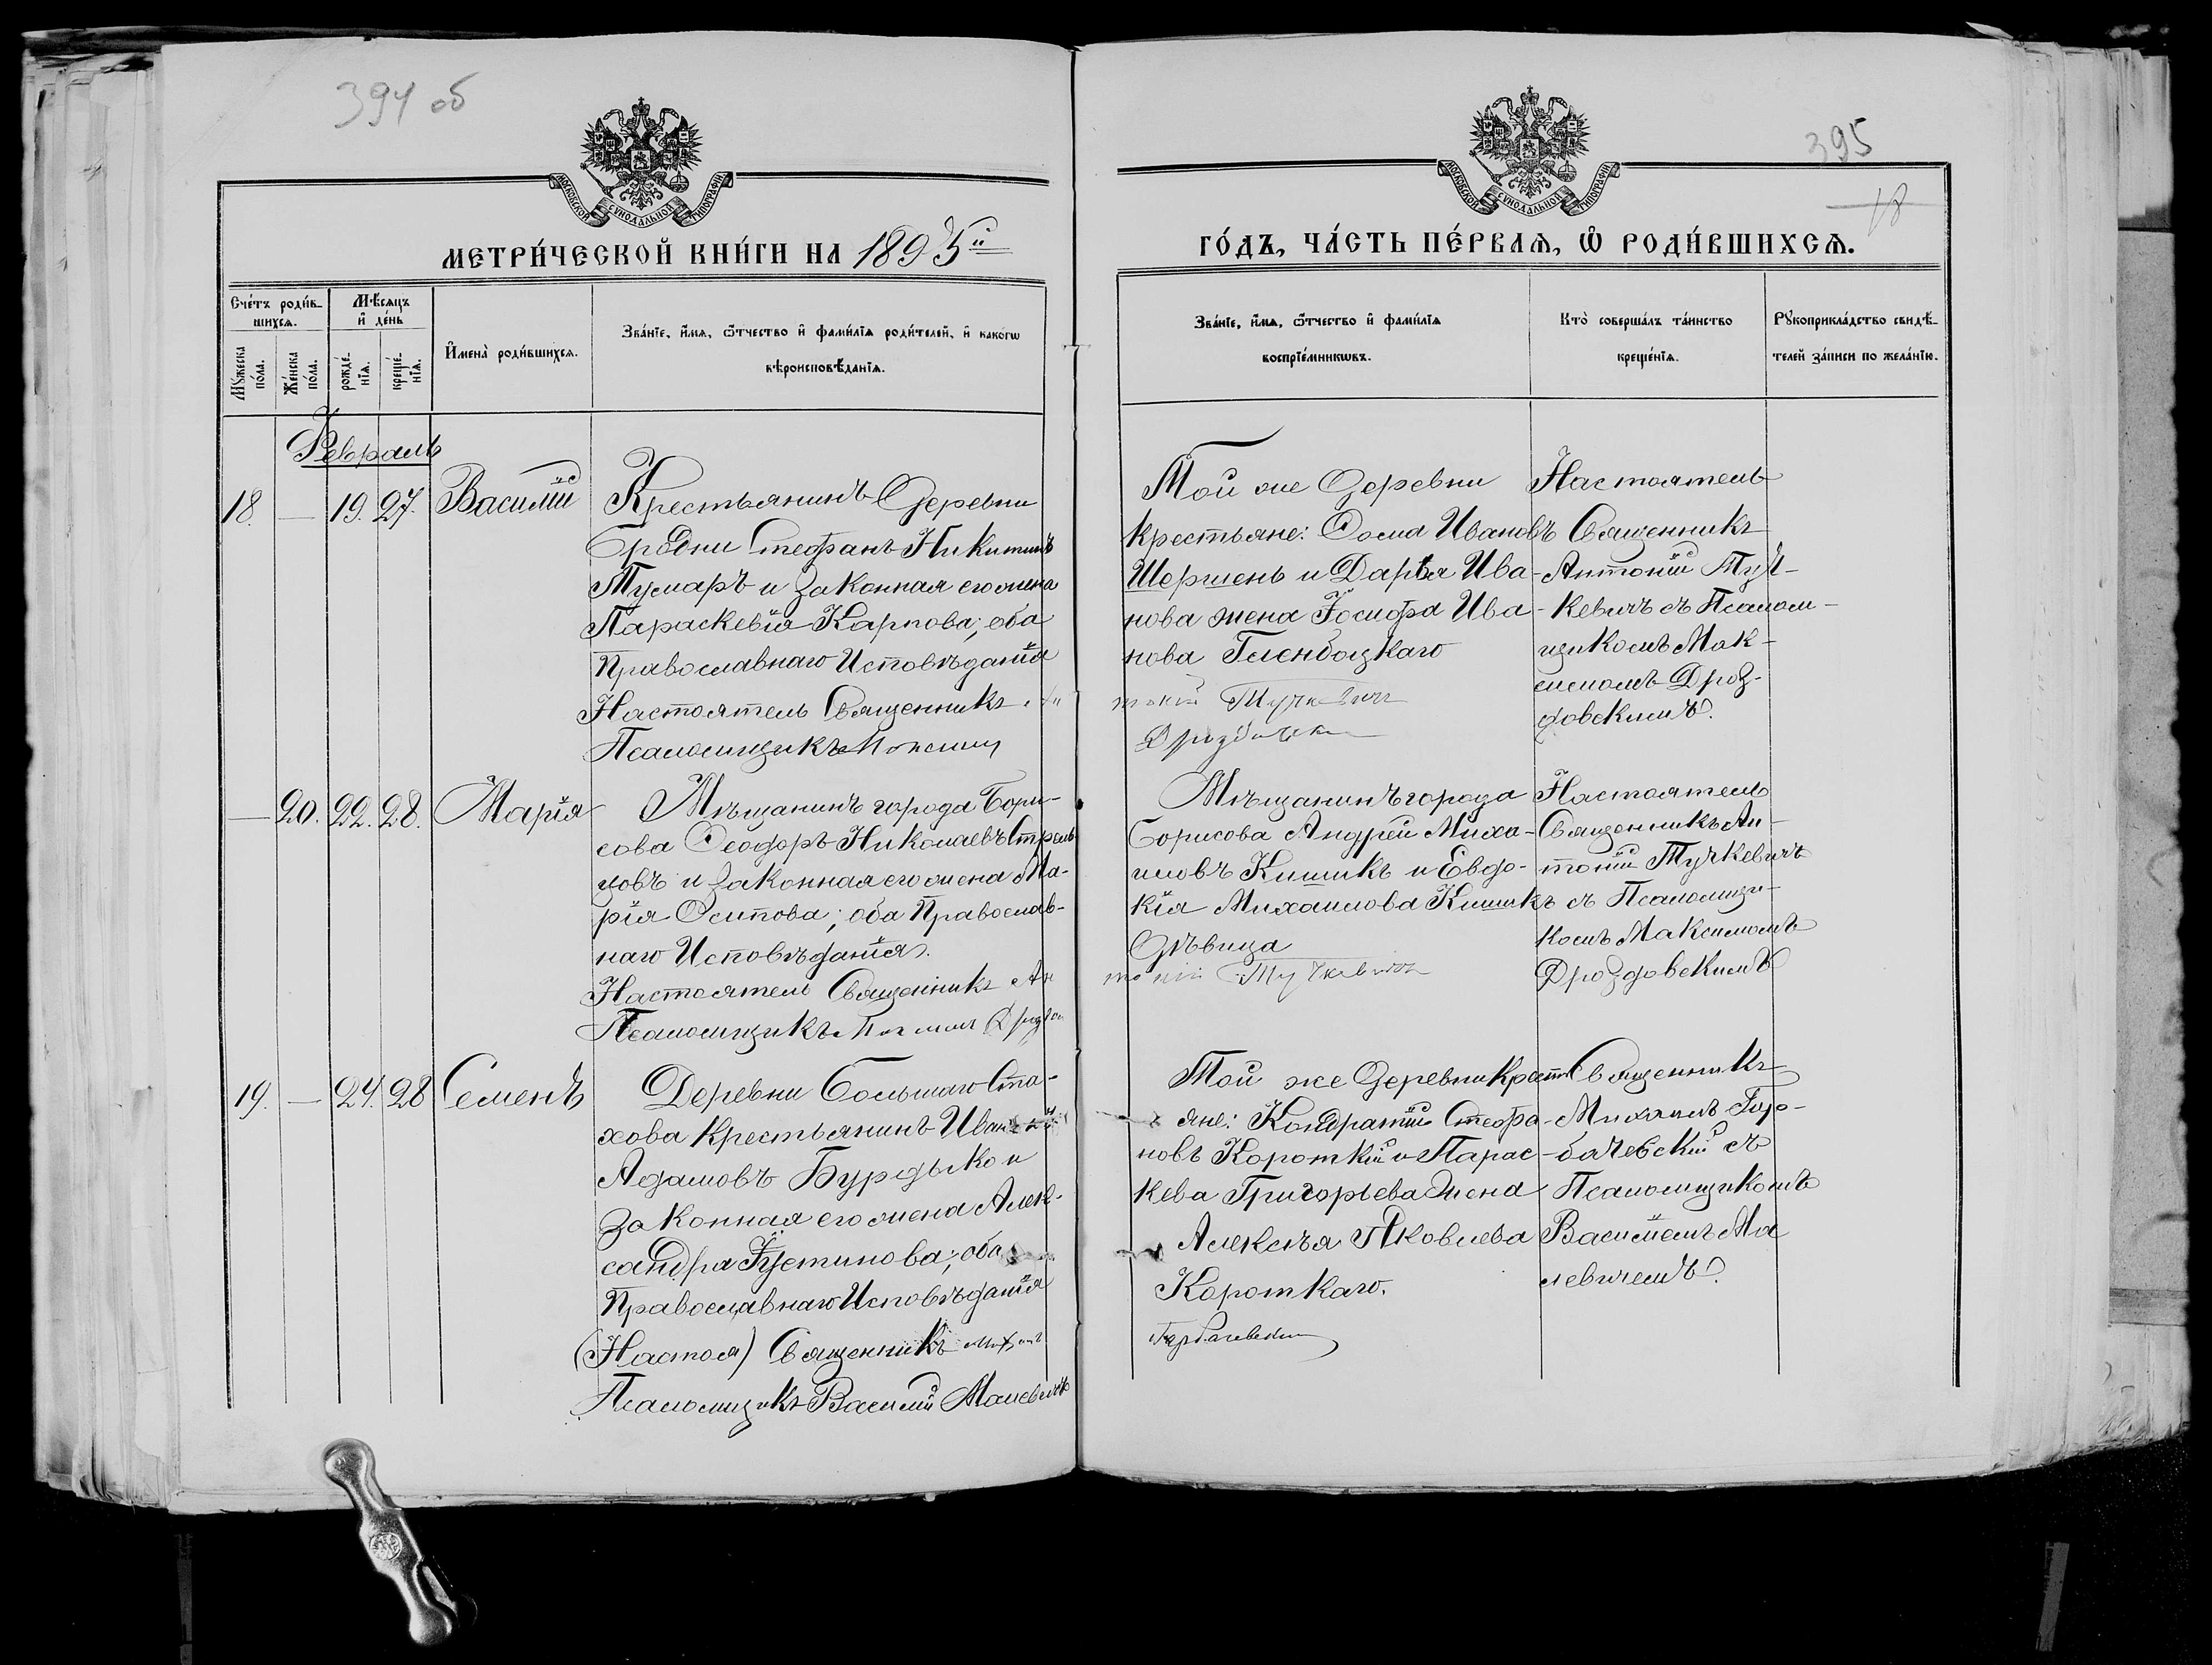 394 об
МОСКОВСКОЙ СѴНОДАЛЬНОЙ ТИПОГРАФІИ
МЕТРИ́ЧЕСКОЙ КНИ́ГИ НА 1895й
Сче́тъ роди́вшихсѧ.
Мѣ́сѧцъ и҆ де́нь
Мꙋ́жеска по́ла.
Же́нска по́ла.
рожде́нїѧ.
креще́нїѧ.
И҆мена̀ роди́вшихсѧ.
Зва́нїе, и҆́мѧ, ѻ҆́тчество и҆ фами́лїѧ роди́телей, и҆ како́гѡ
вѣроисповѣ́данїѧ.
Февраль
18. — 19. 27. Василій
Крестьянинъ деревни
Бродни Стефанъ Никитинъ
Тумаръ и законная его жена
Параскевія Карпова; оба
Православнаго Исповѣданія
Настоятель Священникъ Ан
Псаломщикъ Максим
— 20. 22. 28. Марія
Мѣщанинъ города Бори-
сова Ѳеодоръ Николаевъ Стрель
цовъ и законная его жена Ма-
рія Осипова; оба Православ-
наго Исповѣданія.
Настоятель Священникъ Ан
Псаломщикъ Дроздов
19. — 24. 28 Семенъ
Деревни Большаго Ста-
хова Крестьянинъ Иванъ
Адамовъ Бурдыко и
законная его жена Алек-
сандра Іустинова; оба
Православнаго Исповѣданія
(Настоя) Священникъ Михаилъ
Псаломщикъ Василій Малевичъ
395
18
МОСКОВСКОЙ СѴНОДАЛЬНОЙ ТИПОГРАФІИ
ГО́ДЪ, ЧА́СТЬ ПЕ́РВАѦ, Ѡ҆ РОДИ́ВШИХСѦ.
Зва́нїе, и҆́мѧ, ѻ҆́тчество и҆ фами́лїѧ
воспрїе́мникѡвъ.
Кто̀ соверша́лъ та́инство
креще́нїѧ.
Рꙋкоприкла́дство свидѣ́-
телей за́писи по жела́нїю.
Той же деревни
крестьяне: Ѳома Ивановъ
Шершень и Дарья Ива-
нова жена Іосифа Ива-
нова Глембоцкаго
тоній Тучкевичъ
Дроздовскій
Настоятель
Священникъ
Антоній Туч-
кевичъ съ Псалом-
щикомъ Мак-
симомъ Дроз-
довскимъ.
Мѣщанинъ города
Борисова Андрей Миха-
иловъ Кишикъ и Евдо-
кія Михаилова Кишикъ
дѣвица
тоній Тучкевичъ
Настоятель
Священникъ Ан-
тоній Тучкевичъ
съ Псаломщи-
комъ Максимомъ
Дроздовскимъ
Той же деревни Крестья
яне: Кондратій Стефа-
новъ Короткій и Парас-
кева Григорьева жена
Алексѣя Яковлева
Короткаго.
Горбачевскій
Священникъ
Михаилъ Гор-
бачевскій съ
Псаломщикомъ
Василіемъ Ма
левичемъ.